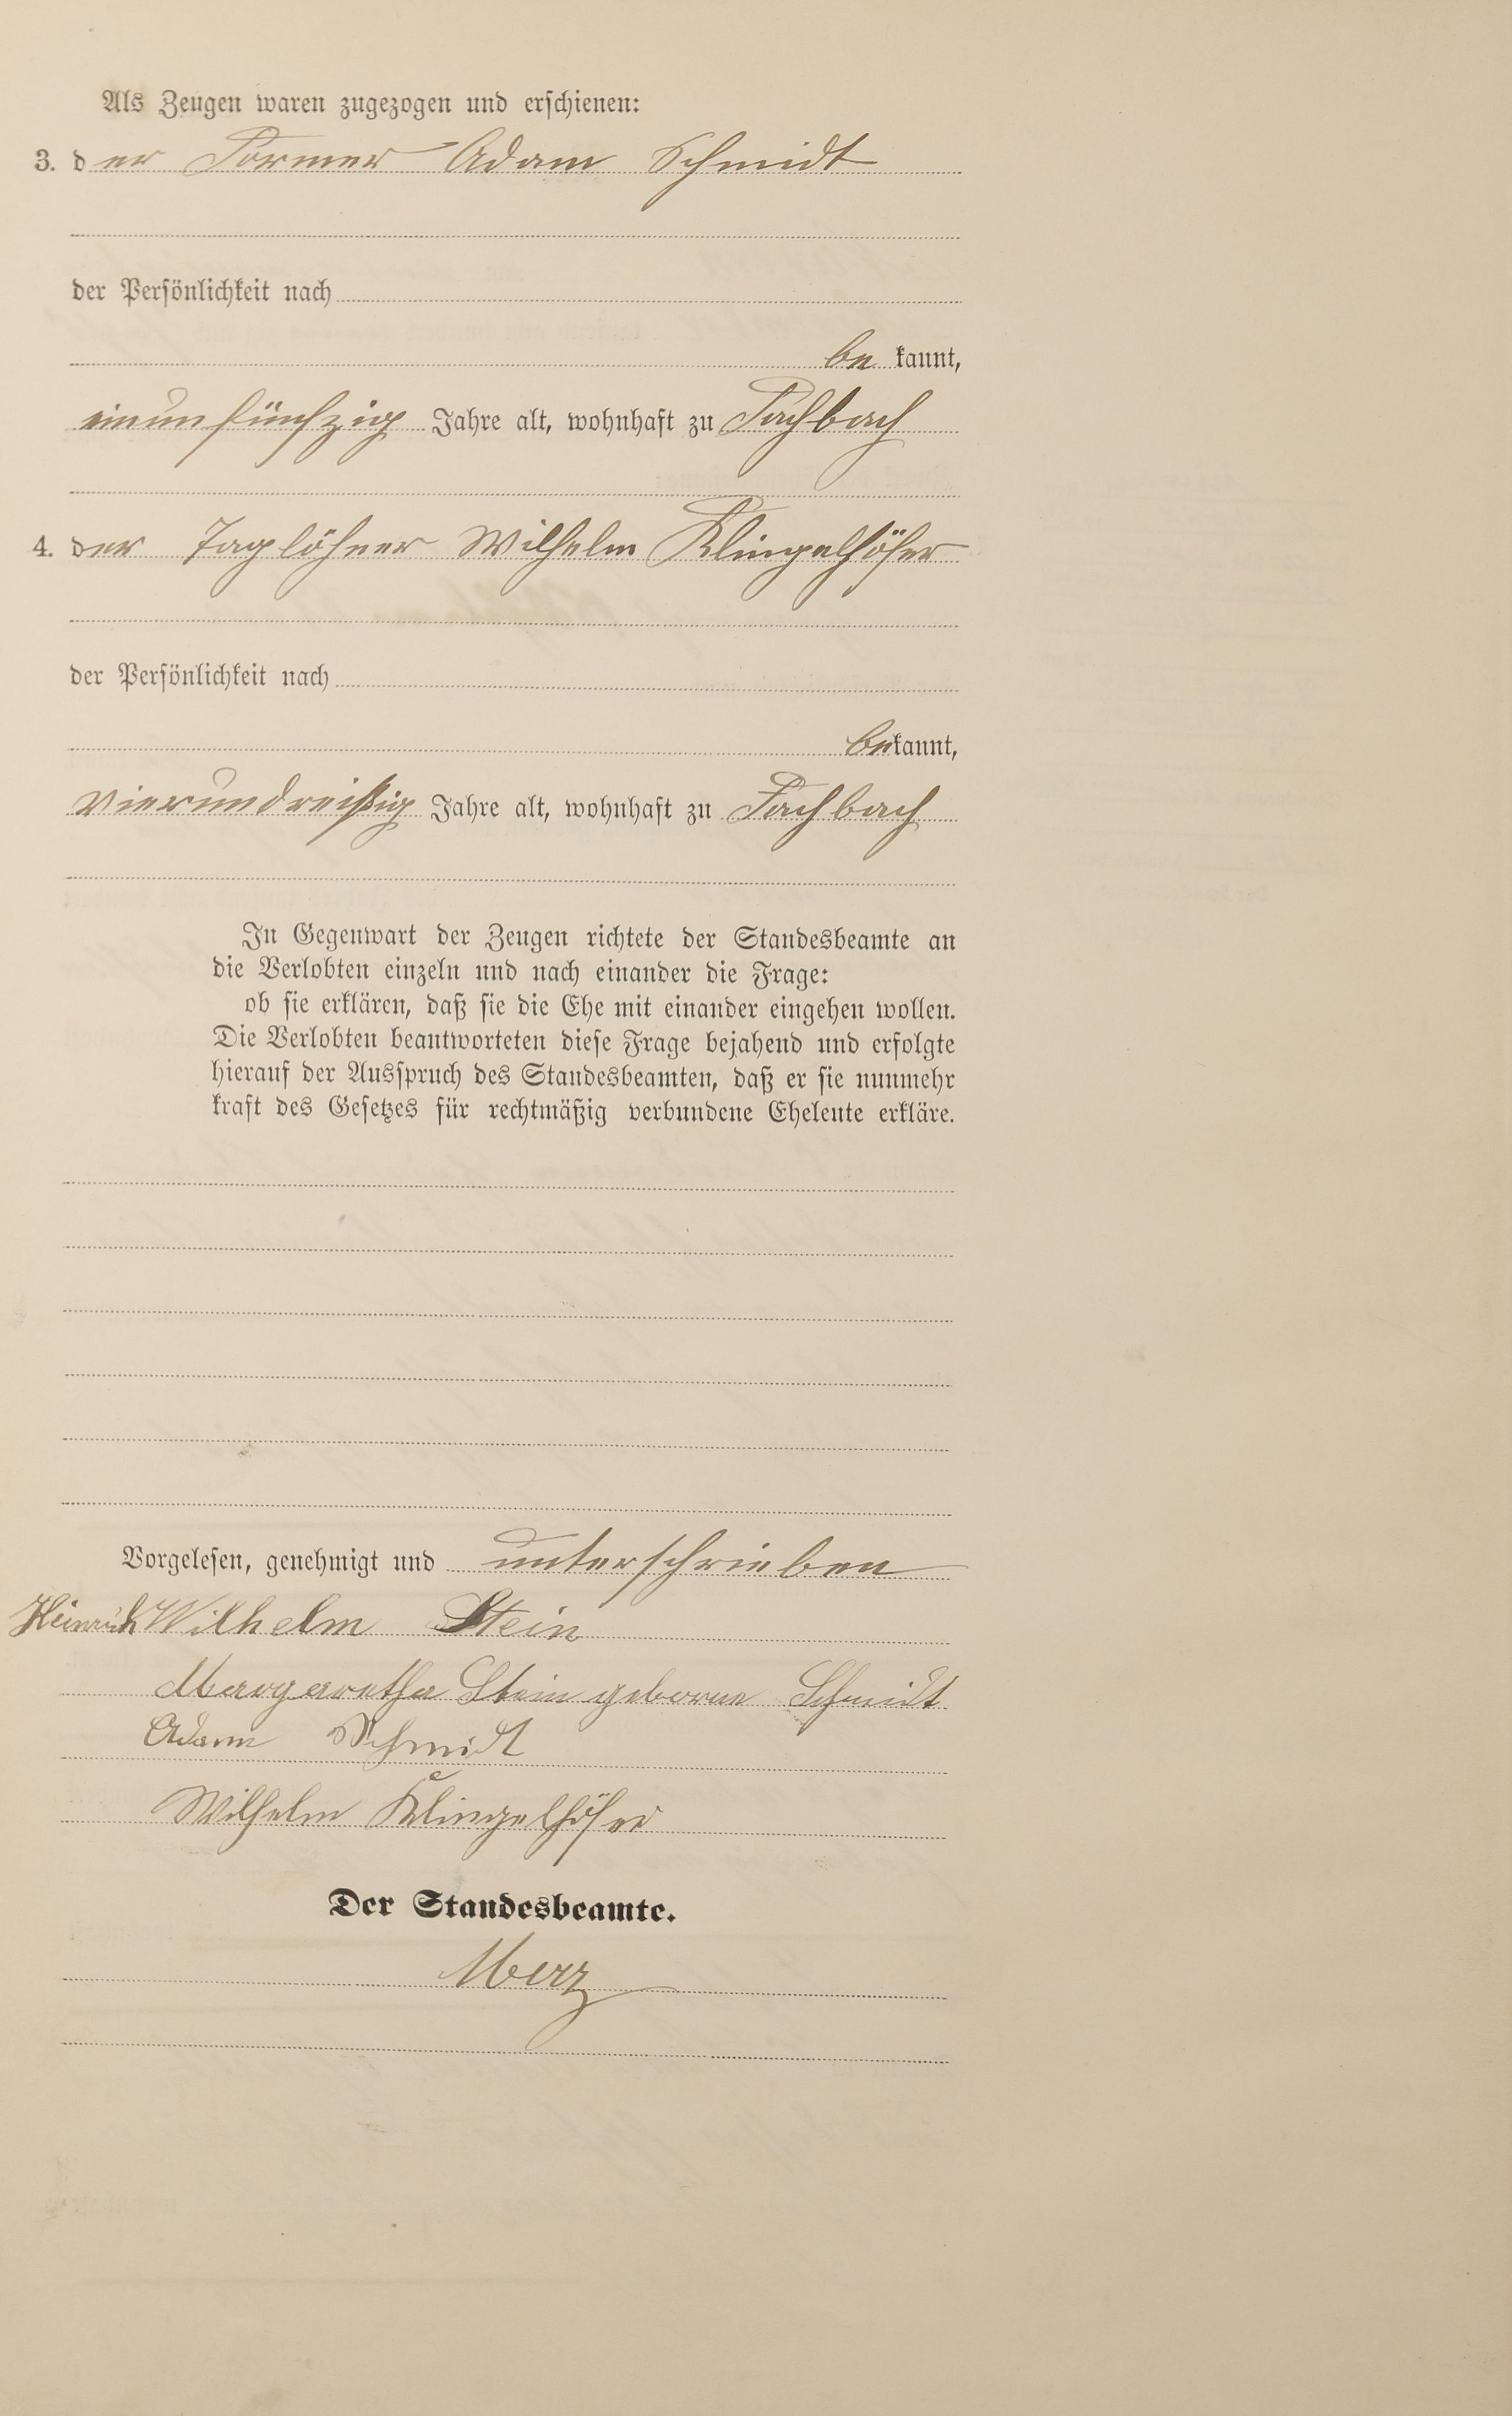 Als Zeugen waren zugezogen und erschienen:
3. der Former Adam Schmidt
der Persönlichkeit nach
bekannt,
einunfünfzig Jahre alt, wohnhaft zu Fachbach
4. der Taglöhner Wilhelm Klingelhöfer
der Persönlichkeit nach
bekannt,
vierundreißig Jahre alt, wohnhaft zu Fachbach
In Gegenwart der Zeugen richtete der Standesbeamte an
die Verlobten einzeln und nach einander die Frage:
ob sie erklären, daß sie die Ehe mit einander eingehen wollen.
Die Verlobten beantworteten diese Frage bejahend und erfolgte
hierauf der Ausspruch des Standesbeamten, daß er sie nunmehr
kraft des Gesetzes für rechtmäßig verbundene Eheleute erkläre.
Vorgelesen, genehmigt und unterschrieben
Heinrich Wilhelm Stein
Margaretha Stein geborne Schmidt
Adam Schmidt
Wilhelm Klingelhöfer
Der Standesbeamte.
Merz